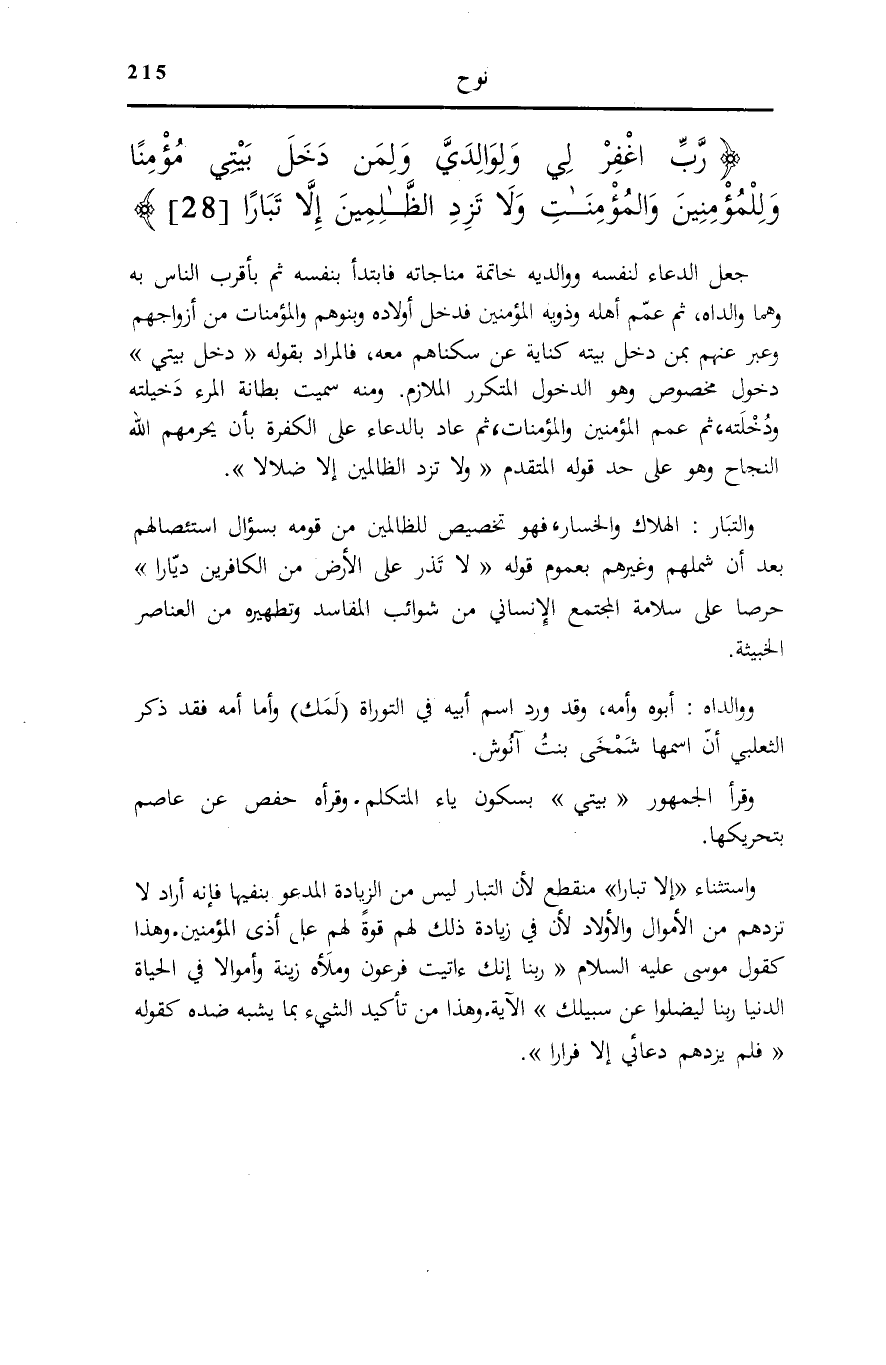 215
نوح
﴿ رَّبِّ اغْفِرْ لِي وَلِوَالِدَيَّ وَلِمَن دَخَلَ بَيْتِي مُؤْمِنًا
وَلِلْمُؤْمِنِينَ وَالمُؤْمِنَـٰتِ وَلَا تَزِدِ الظَّـٰلِمِينَ إِلَّا تَبَارًا [28] ﴾
جعل الدعاء لنفسه ووالديه خاتمة مناجاته فابتدأ بنفسه ثم بأقرب الناس به
وهما والداه، ثم عمّم أهله وذويه المؤمنين فدخل أولاده وبنوهم والمؤمنات من أزواجهم
وعبر عنهم بمن دخل بيته كناية عن سكناهم معه، فالمراد بقوله « دخل بيتي »
دخول مخصوص وهو الدخول المتكرر الملازم. ومنه سميت بطانة المرء دَخيلته
ودُخْلَته، ثم عمم المؤمنين والمؤمنات، ثم عاد بالدعاء على الكفرة بأن يحرمهم الله
النجاح وهو على حد قوله المتقدم « ولا تزد الظالمين إلا ضلالا ».
والتبَار : الهلاك والخسار، فهو تخصيص للظالمين من قومه بسؤال استئصالهم
بعد أن شملهم وغيرهم بعموم قوله « لا تَذر على الأرض من الكافرين ديّارا »
حرصا على سلامة المجتمع الإنساني من شوائب المفاسد وتطهيره من العناصر
الخبيثة.
ووالداه : أبوه وأمه، وقد ورد اسم أبيه في التوراة (لَمَك) وأما أمه فقد ذكر
الثعلبي أنّ اسمها شَمْخَى بنتُ آنُوش.
وقرأ الجمهور « بيتي » بسكون ياء المتكلم. وقرأه حفص عن عاصم
بتحريكها.
واستثناء «إلا تبارا» منقطع لأن التبار ليس من الزيادة المدعو بنفيها فإنه أراد لا
تزدهم من الأموال والأولاد لأن في زيادة ذلك لهم قوةً لهم على أذى المؤمنين. وهذا
كقول موسى عليه السلام « ربنا إنك ءاتيت فرعون وملَأه زينة وأموالا في الحياة
الدنيا ربنا ليضلوا عن سبيلك » الآية. وهذا من تأكيد الشيء بما يشبه ضده كقوله
« فلم يزدهم دعائي إلا فرارا ».